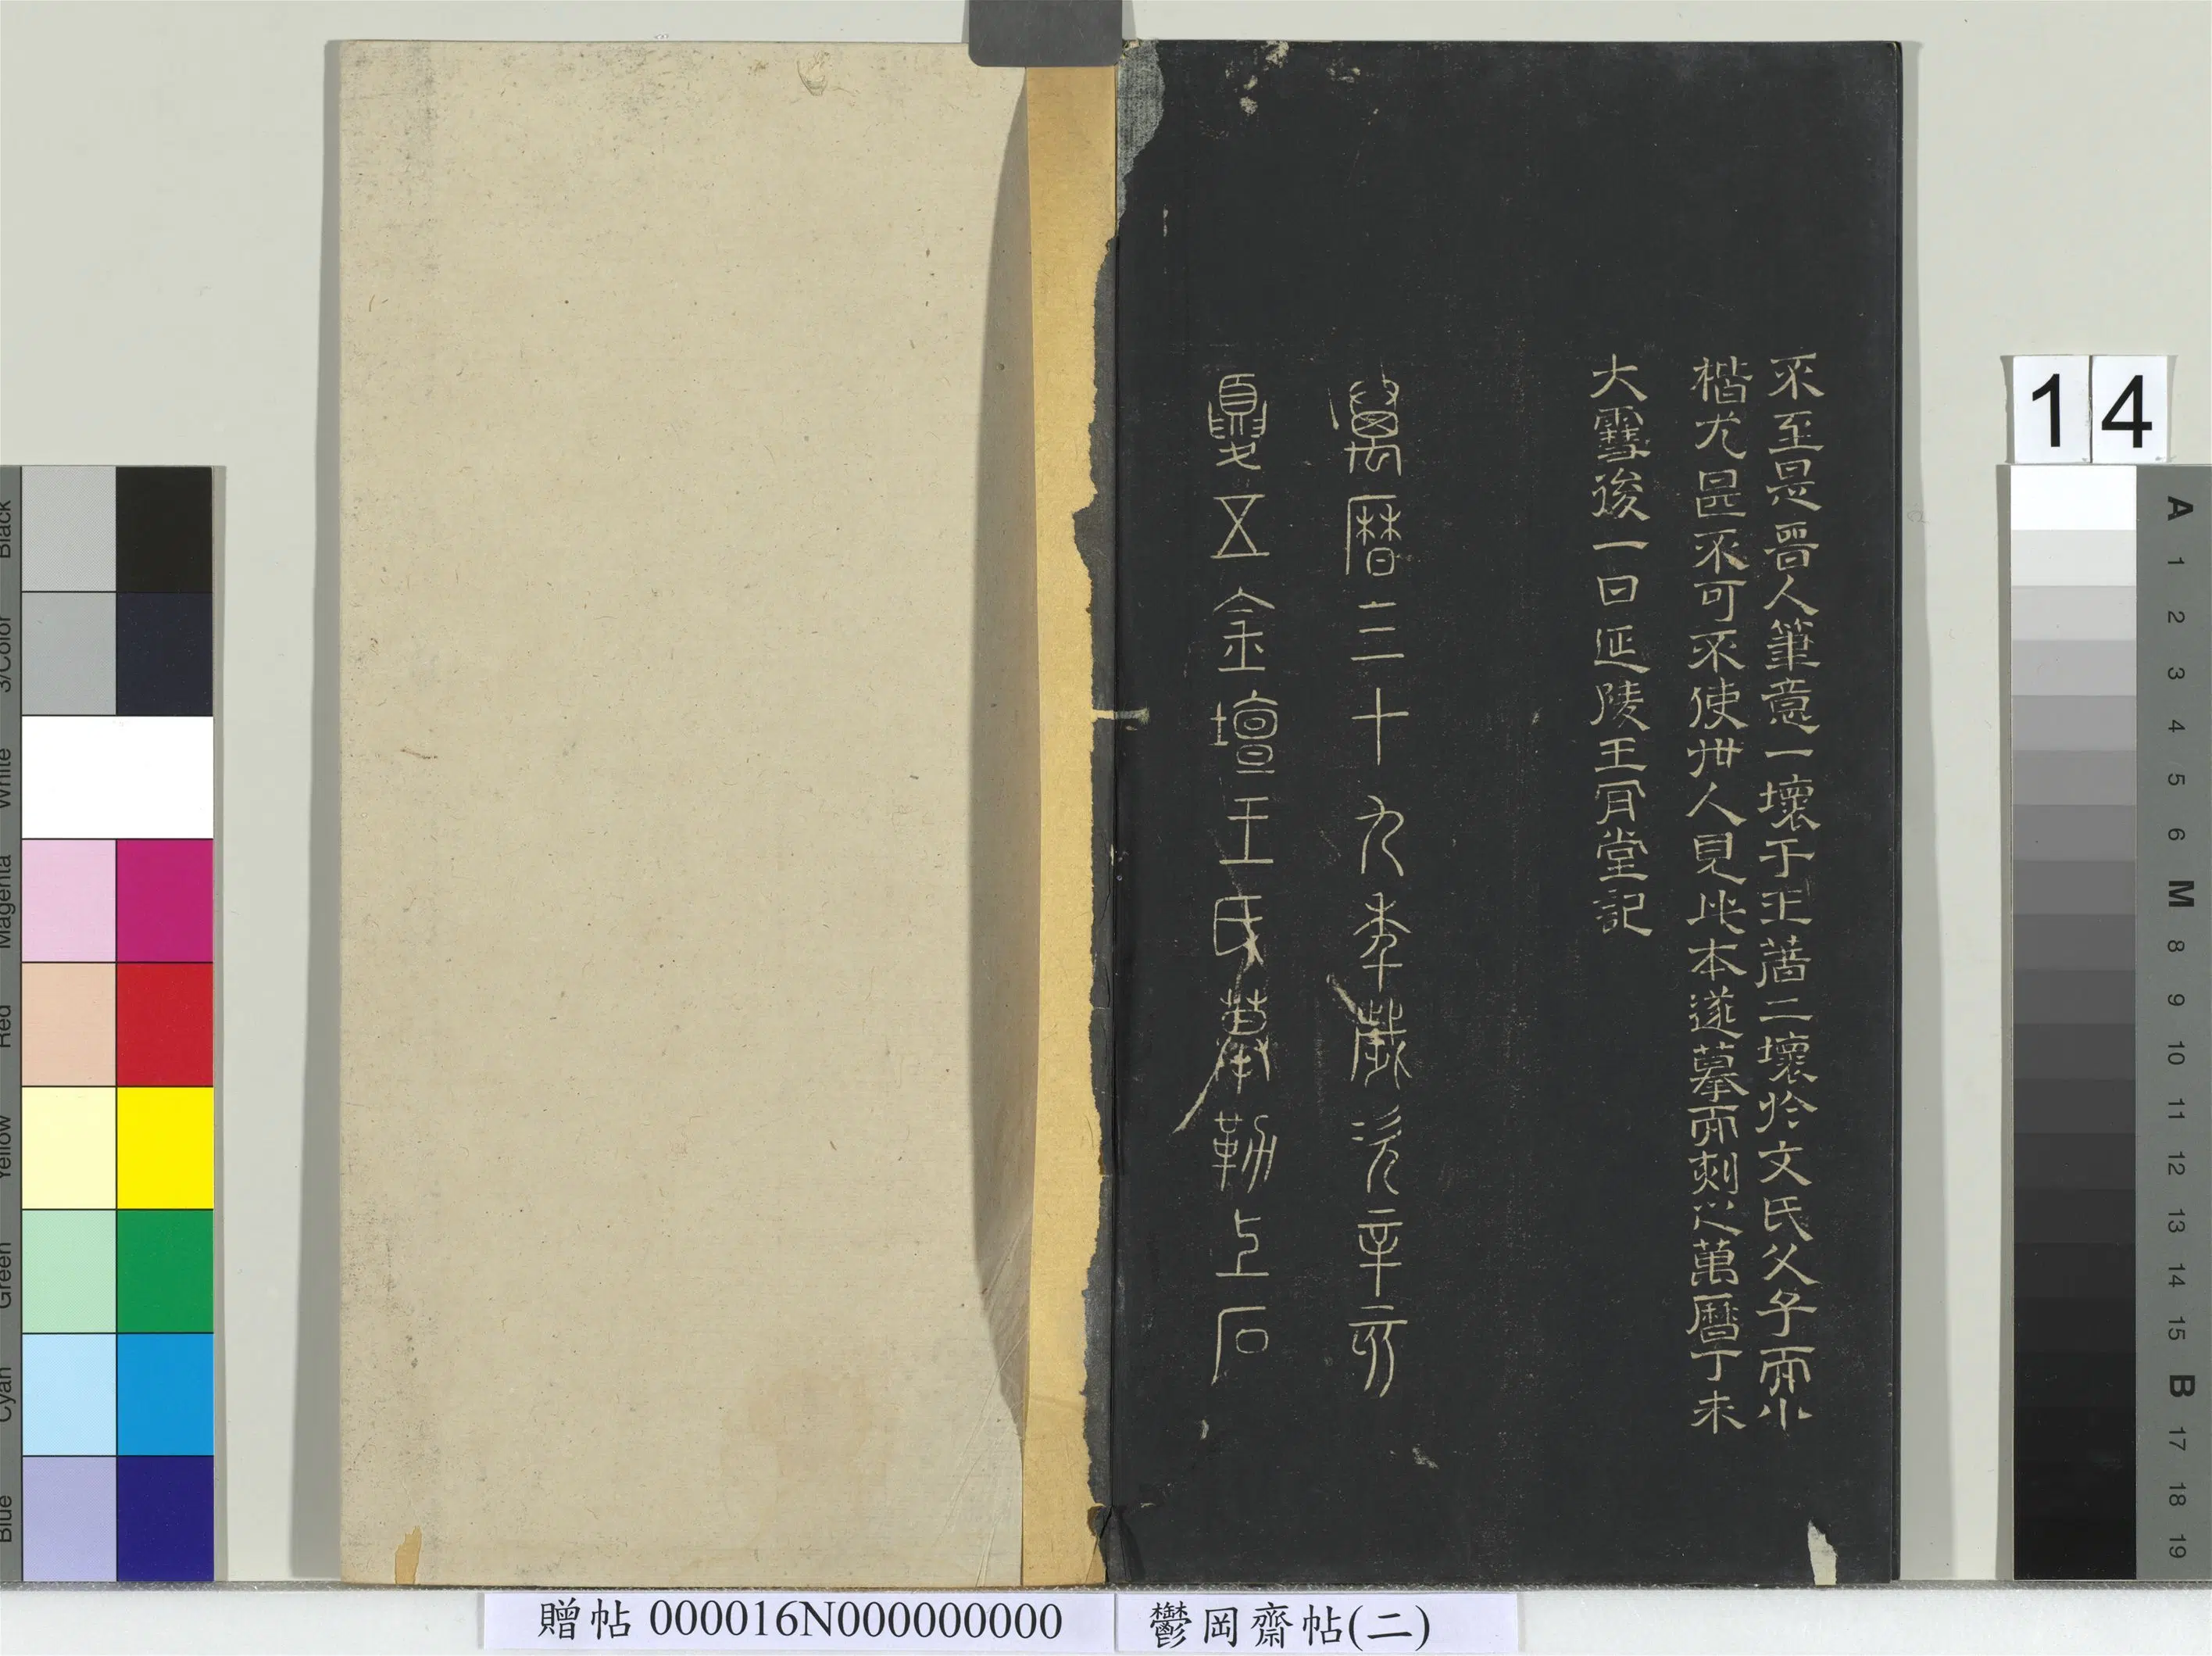 不至是晉人筆意一壞于王著二壞於文氏父子而小
楷尤甚不可不使世人見此本遂摹而刻之萬曆丁未
大雪後一日延陵王肎堂記
萬曆三十九年歲次辛亥
夏五金壇王氏摹勒上石
14
贈帖 000016N000000000
鬱岡齋帖(二)
Black
3/Color
White
Magenta
Red
Yellow
Green
Cyan
Blue
A 1 2 3 4 5 6 M 8 9 10 11 12 13 14 15 B 17 18 19